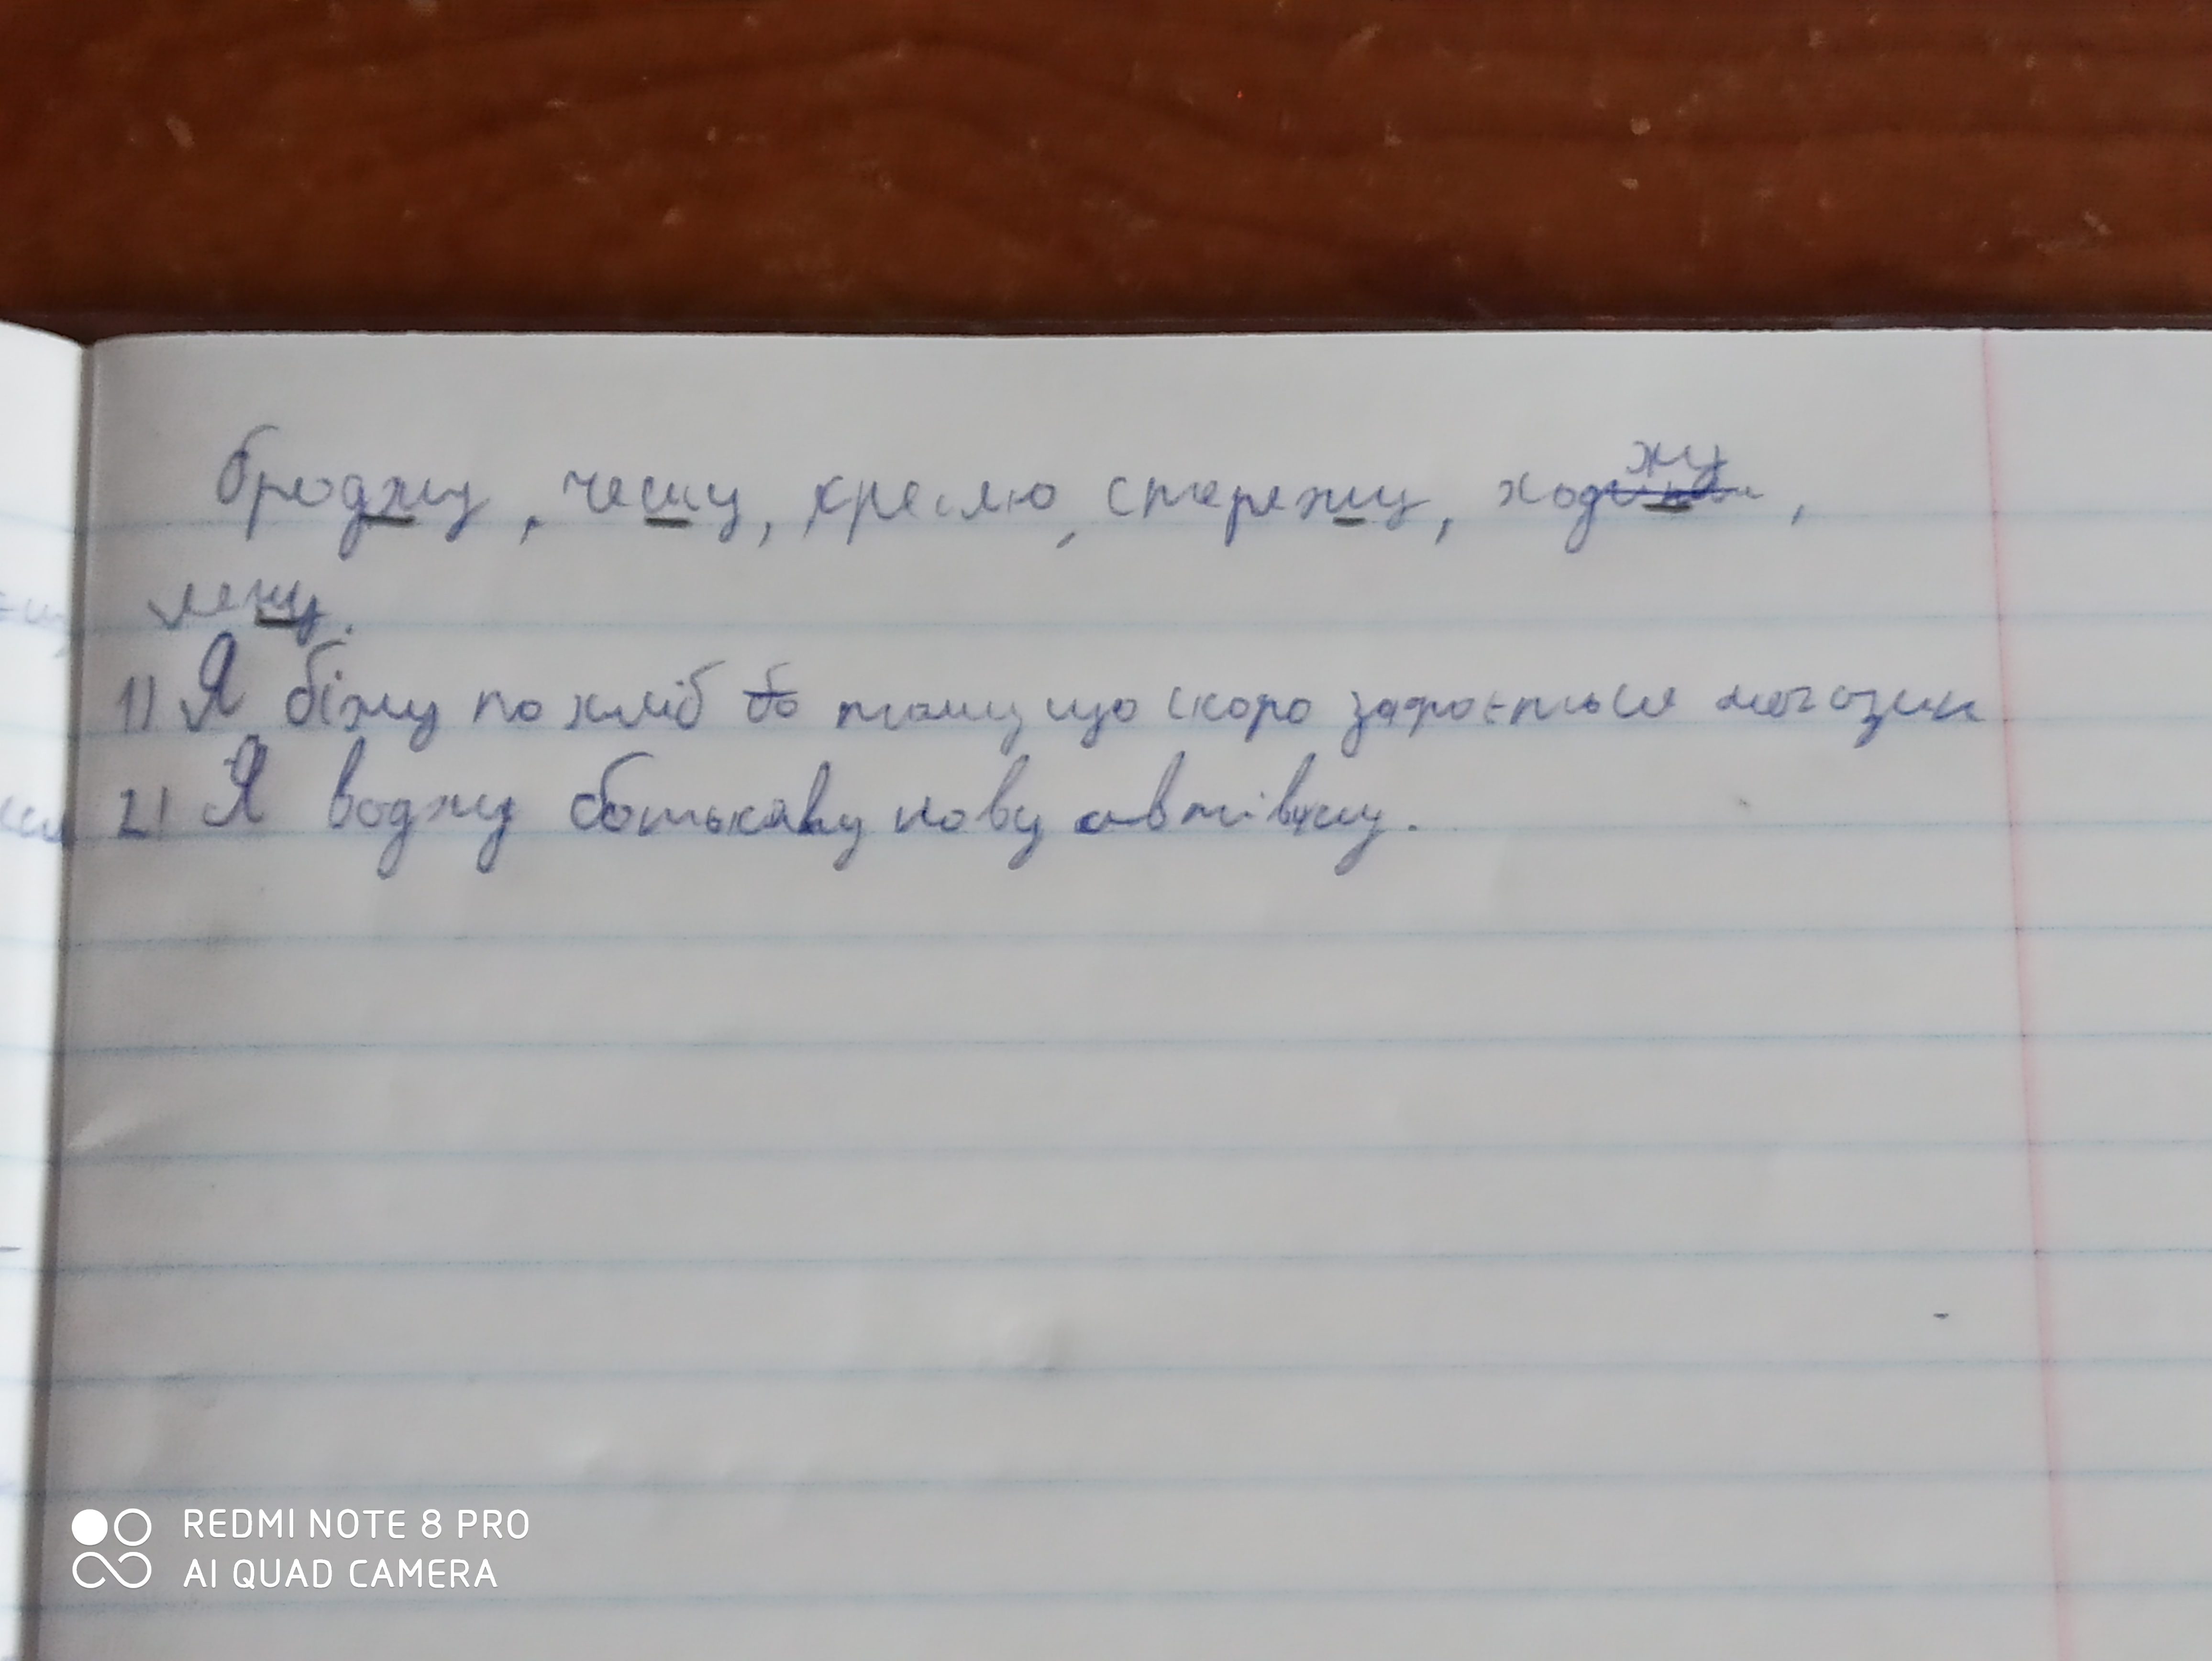 броджу, чешу, креслю, стережу, ходжу,
лечу.
1) Я біжу по хліб бо тому що скоро закроється магазин
2) Я воджу батькаву нову автівку.
REDMI NOTE 8 PRO
AI QUAD CAMERA